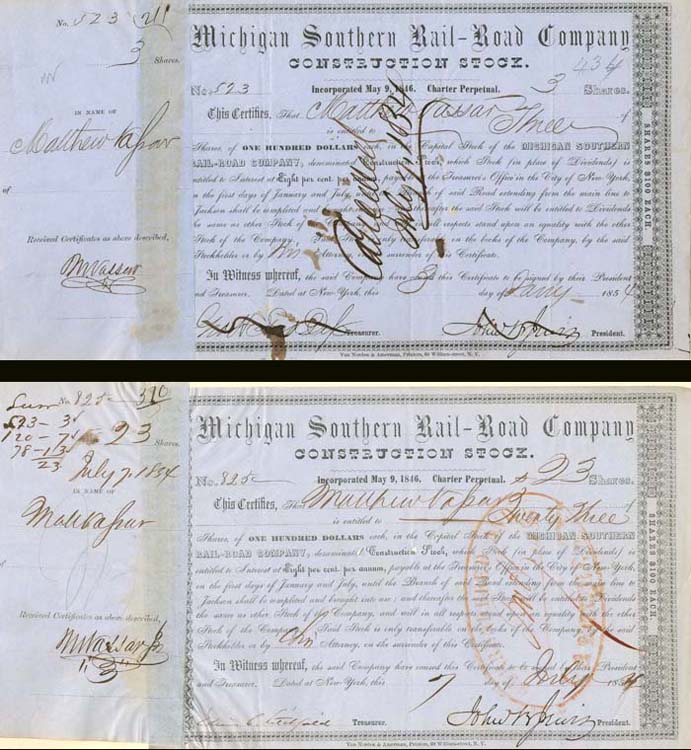 No. 523
3 Shares.
IN NAME OF
Matthew Vassar
of
Received Certificates as above described,
M Vassar
Michigan Southern Rail-Road Company
CONSTRUCTION STOCK.
No. 523 Incorporated May 9, 1846. Charter Perpetual. 3 Shares.
This Certifies, That Matthew Vassar
is entitled to Three
Shares, of ONE HUNDRED DOLLARS each, in the Capital Stock of the MICHIGAN SOUTHERN
RAIL-ROAD COMPANY, denominated Construction Stock, which Stock (in place of Dividends) is
entitled to Interest at Eight per cent. per annum, payable at the Treasurer's Office in the City of New-York,
in the first days of January and July, until the Branch of said Road extending from the main line to
Jackson shall be completed and brought into use; and thereafter the said Stock will be entitled to Dividends
the same as other Stock of the Company, and will in all respects stand upon an equality with the other
Stock of the Company. Said Stock is only transferable on the books of the Company, by the said
Stockholder or by his Attorney, on the surrender of this Certificate.
In Witness whereof, the said Company have caused this Certificate to be signed by their President
and Treasurer. Dated at New-York, this 3 day of Jany 1854
Treasurer. John B Jervis President.
Cancelled July 7 1854
SHARES $100 EACH
Van Norden & Amerman, Printers, 60 William-street, N. Y.
No. 825 310
523 - 3
120 - 7
78 - 13
23
23 Shares.
July 7, 1854
IN NAME OF
Matt Vassar
Received Certificates as above described,
M Vassar Jr
Michigan Southern Rail-Road Company
CONSTRUCTION STOCK.
No. 825 Incorporated May 9, 1846. Charter Perpetual. 23 Shares.
This Certifies, That Matthew Vassar
is entitled to Twenty Three
Shares, of ONE HUNDRED DOLLARS each, in the Capital Stock of the MICHIGAN SOUTHERN
RAIL-ROAD COMPANY, denominated Construction Stock, which Stock (in place of Dividends) is
entitled to Interest at Eight per cent. per annum, payable at the Treasurer's Office in the City of New-York,
on the first days of January and July, until the Branch of said Road extending from the main line to
Jackson shall be completed and brought into use; and thereafter the said Stock will be entitled to Dividends
the same as other Stock of the Company, and will in all respects stand upon an equality with the other
Stock of the Company. Said Stock is only transferable on the books of the Company, by the said
Stockholder or by his Attorney, on the surrender of this Certificate.
In Witness whereof, the said Company have caused this Certificate to be signed by their President
and Treasurer. Dated at New-York, this 7 day of July 1854
Treasurer. John B Jervis President.
SHARES $100 EACH
Van Norden & Amerman, Printers, 60 William-street, N. Y.